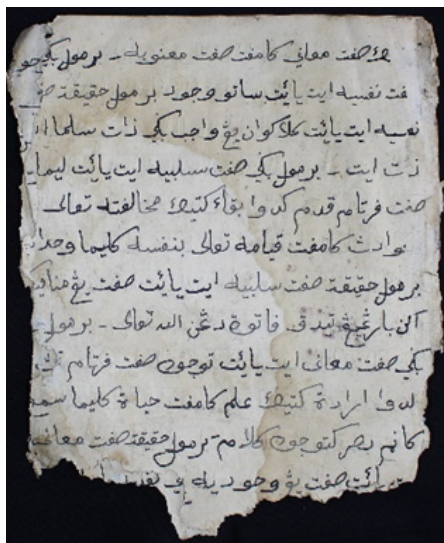 صفت معاني كأمفت صفت معنويه برمول بݢي
فت نفسيه ايت يائت ساتو وجود برمول حقيقة
نفسيه ايت يائت كلاكوان يڠ واجب بݢي ذات سلما
ذات ايت برمول بݢي صفت سلبيه ايت يائت ليما
صفت فرتام قدم كدوا بقاء كتيݢ مخالفته تعالى
كأمفت قيامه تعالى بنفسه كليما
برمول حقيقة صفت سلبيه ايت يائت صفت يڠ
اكن بارڠ يڠ تيدق فاتوة دڠن الله تعالى برمول
بݢي صفت معانى ايت يائت توجوه صفت فرتام
كدوا ارادة كتيݢ علم كأمفت حياة كليما
كأنم بصر كتوجوه كلام برمول حقيقة صفت معانى
يائت صفت يڠ وجوديه